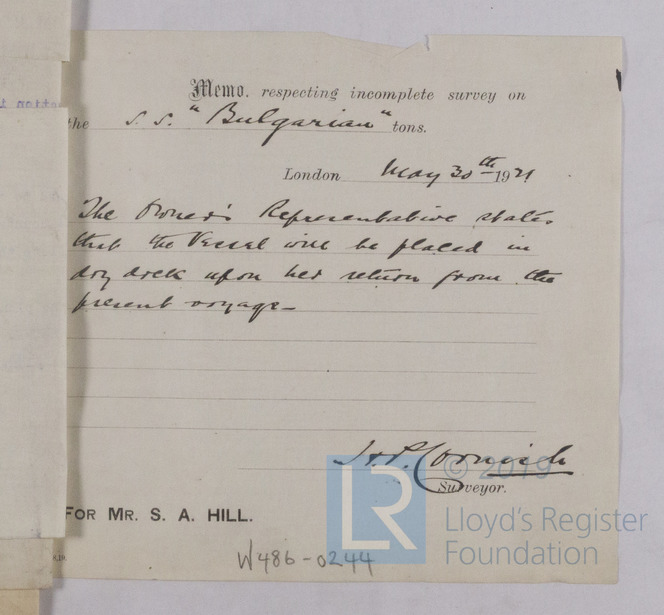 Memo. respecting incomplete survey on
the S.S. "Bulgarian" tons.
London May 30th 1921
The Owner's Representative states
that the Vessel will be placed in
dry dock upon her return from the
present voyage—
H.P. Cornish
Surveyor.
© 2019
LR
Lloyd's Register
Foundation
FOR MR. S. A. HILL.
W486-0244